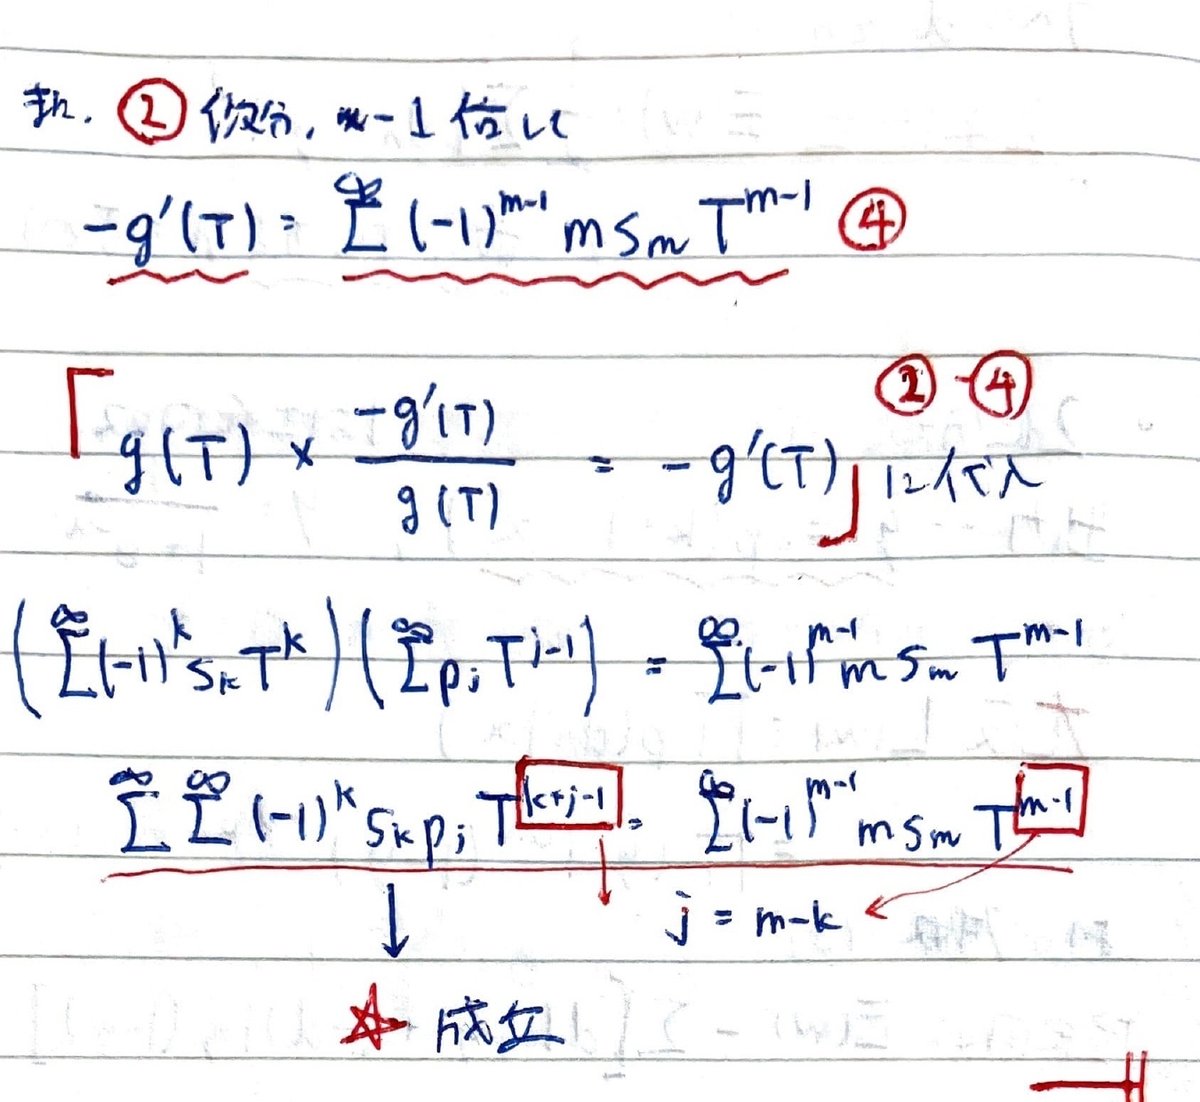 また. ② 微分, × -1 倍して
-g'(T) = ∑^∞ (-1)^{m-1} m s_m T^{m-1} ④
② ④
「 g(T) × \frac{-g'(T)}{g(T)} = -g'(T) 」 に代入
(∑^∞ (-1)^k s_k T^k)(∑^∞ p_j T^{j-1}) = ∑^∞ (-1)^{m-1} m s_m T^{m-1}
∑^∞ ∑^∞ (-1)^k s_k p_j T^{k+j-1} = ∑^∞ (-1)^{m-1} m s_m T^{m-1}
↓ j = m-k
☆ 成立